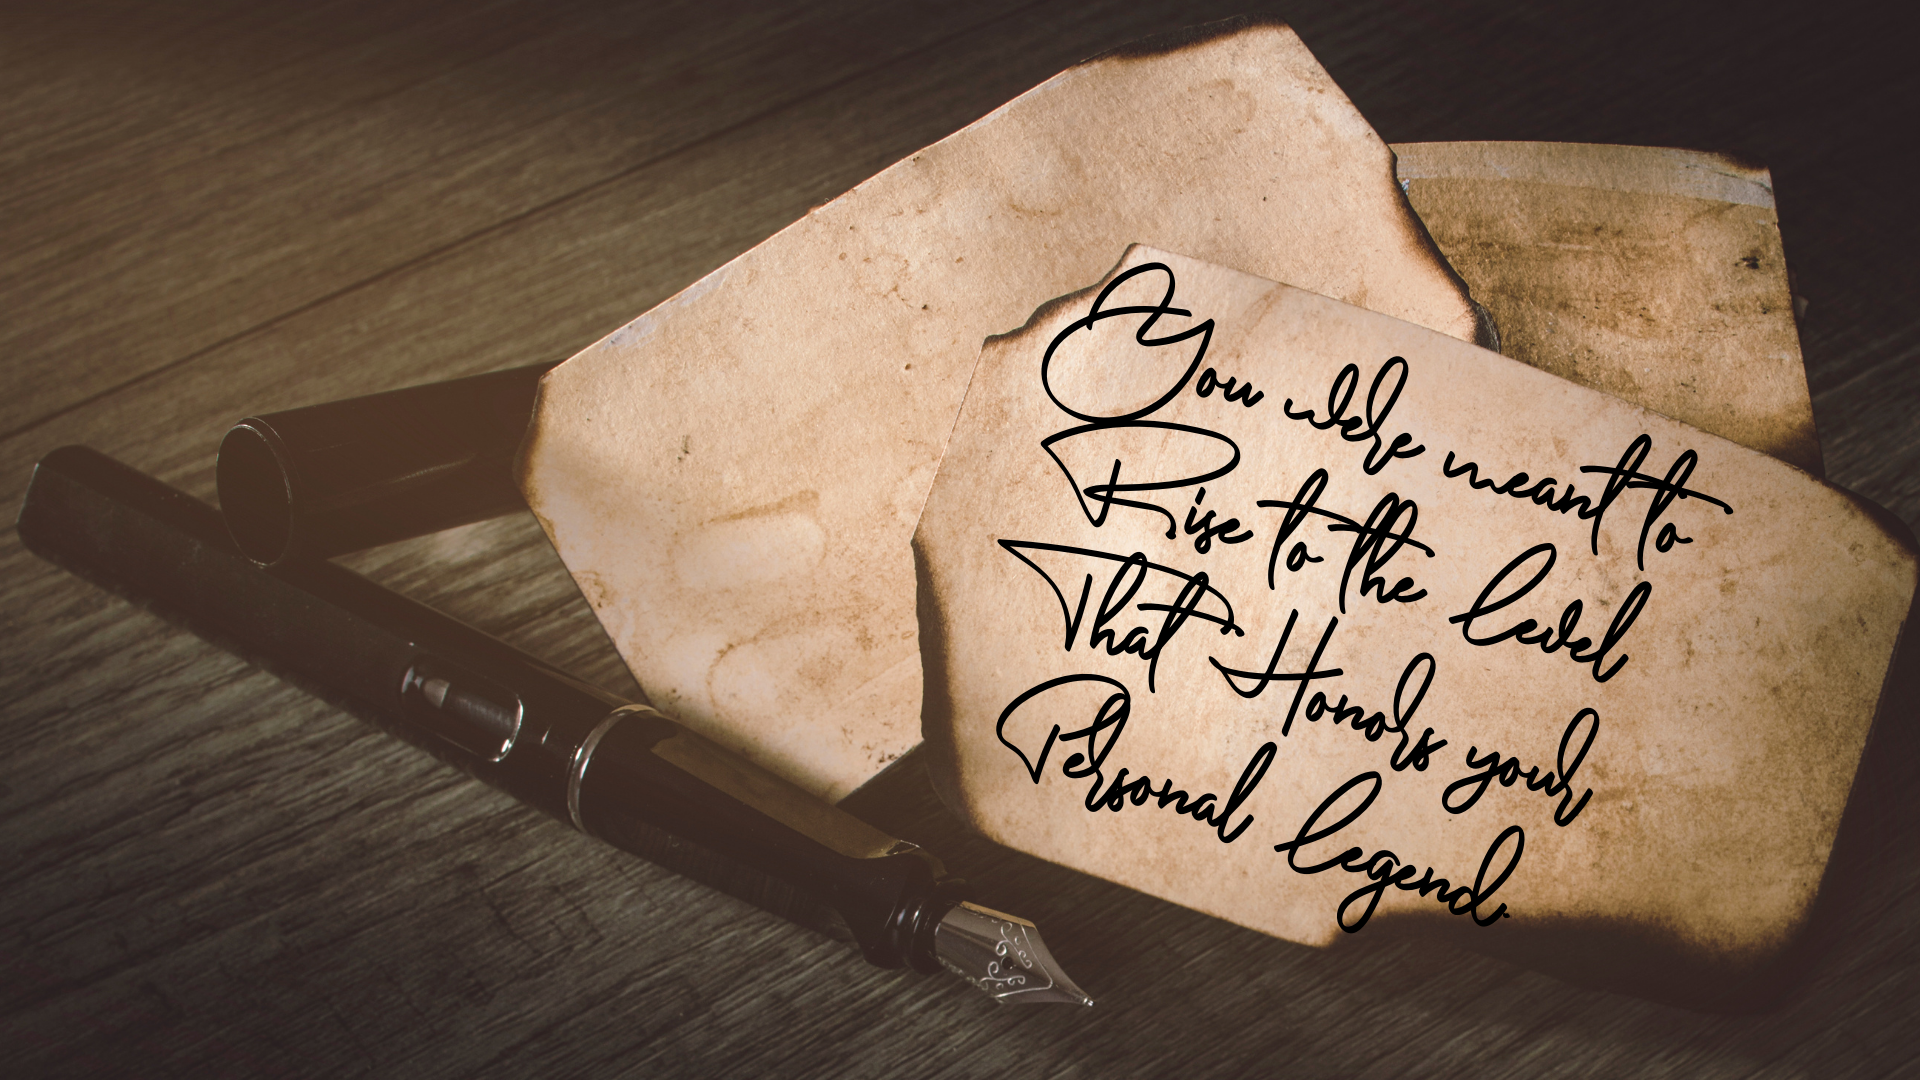 You were meant to
Rise to the level
That Honors your
Personal legend.